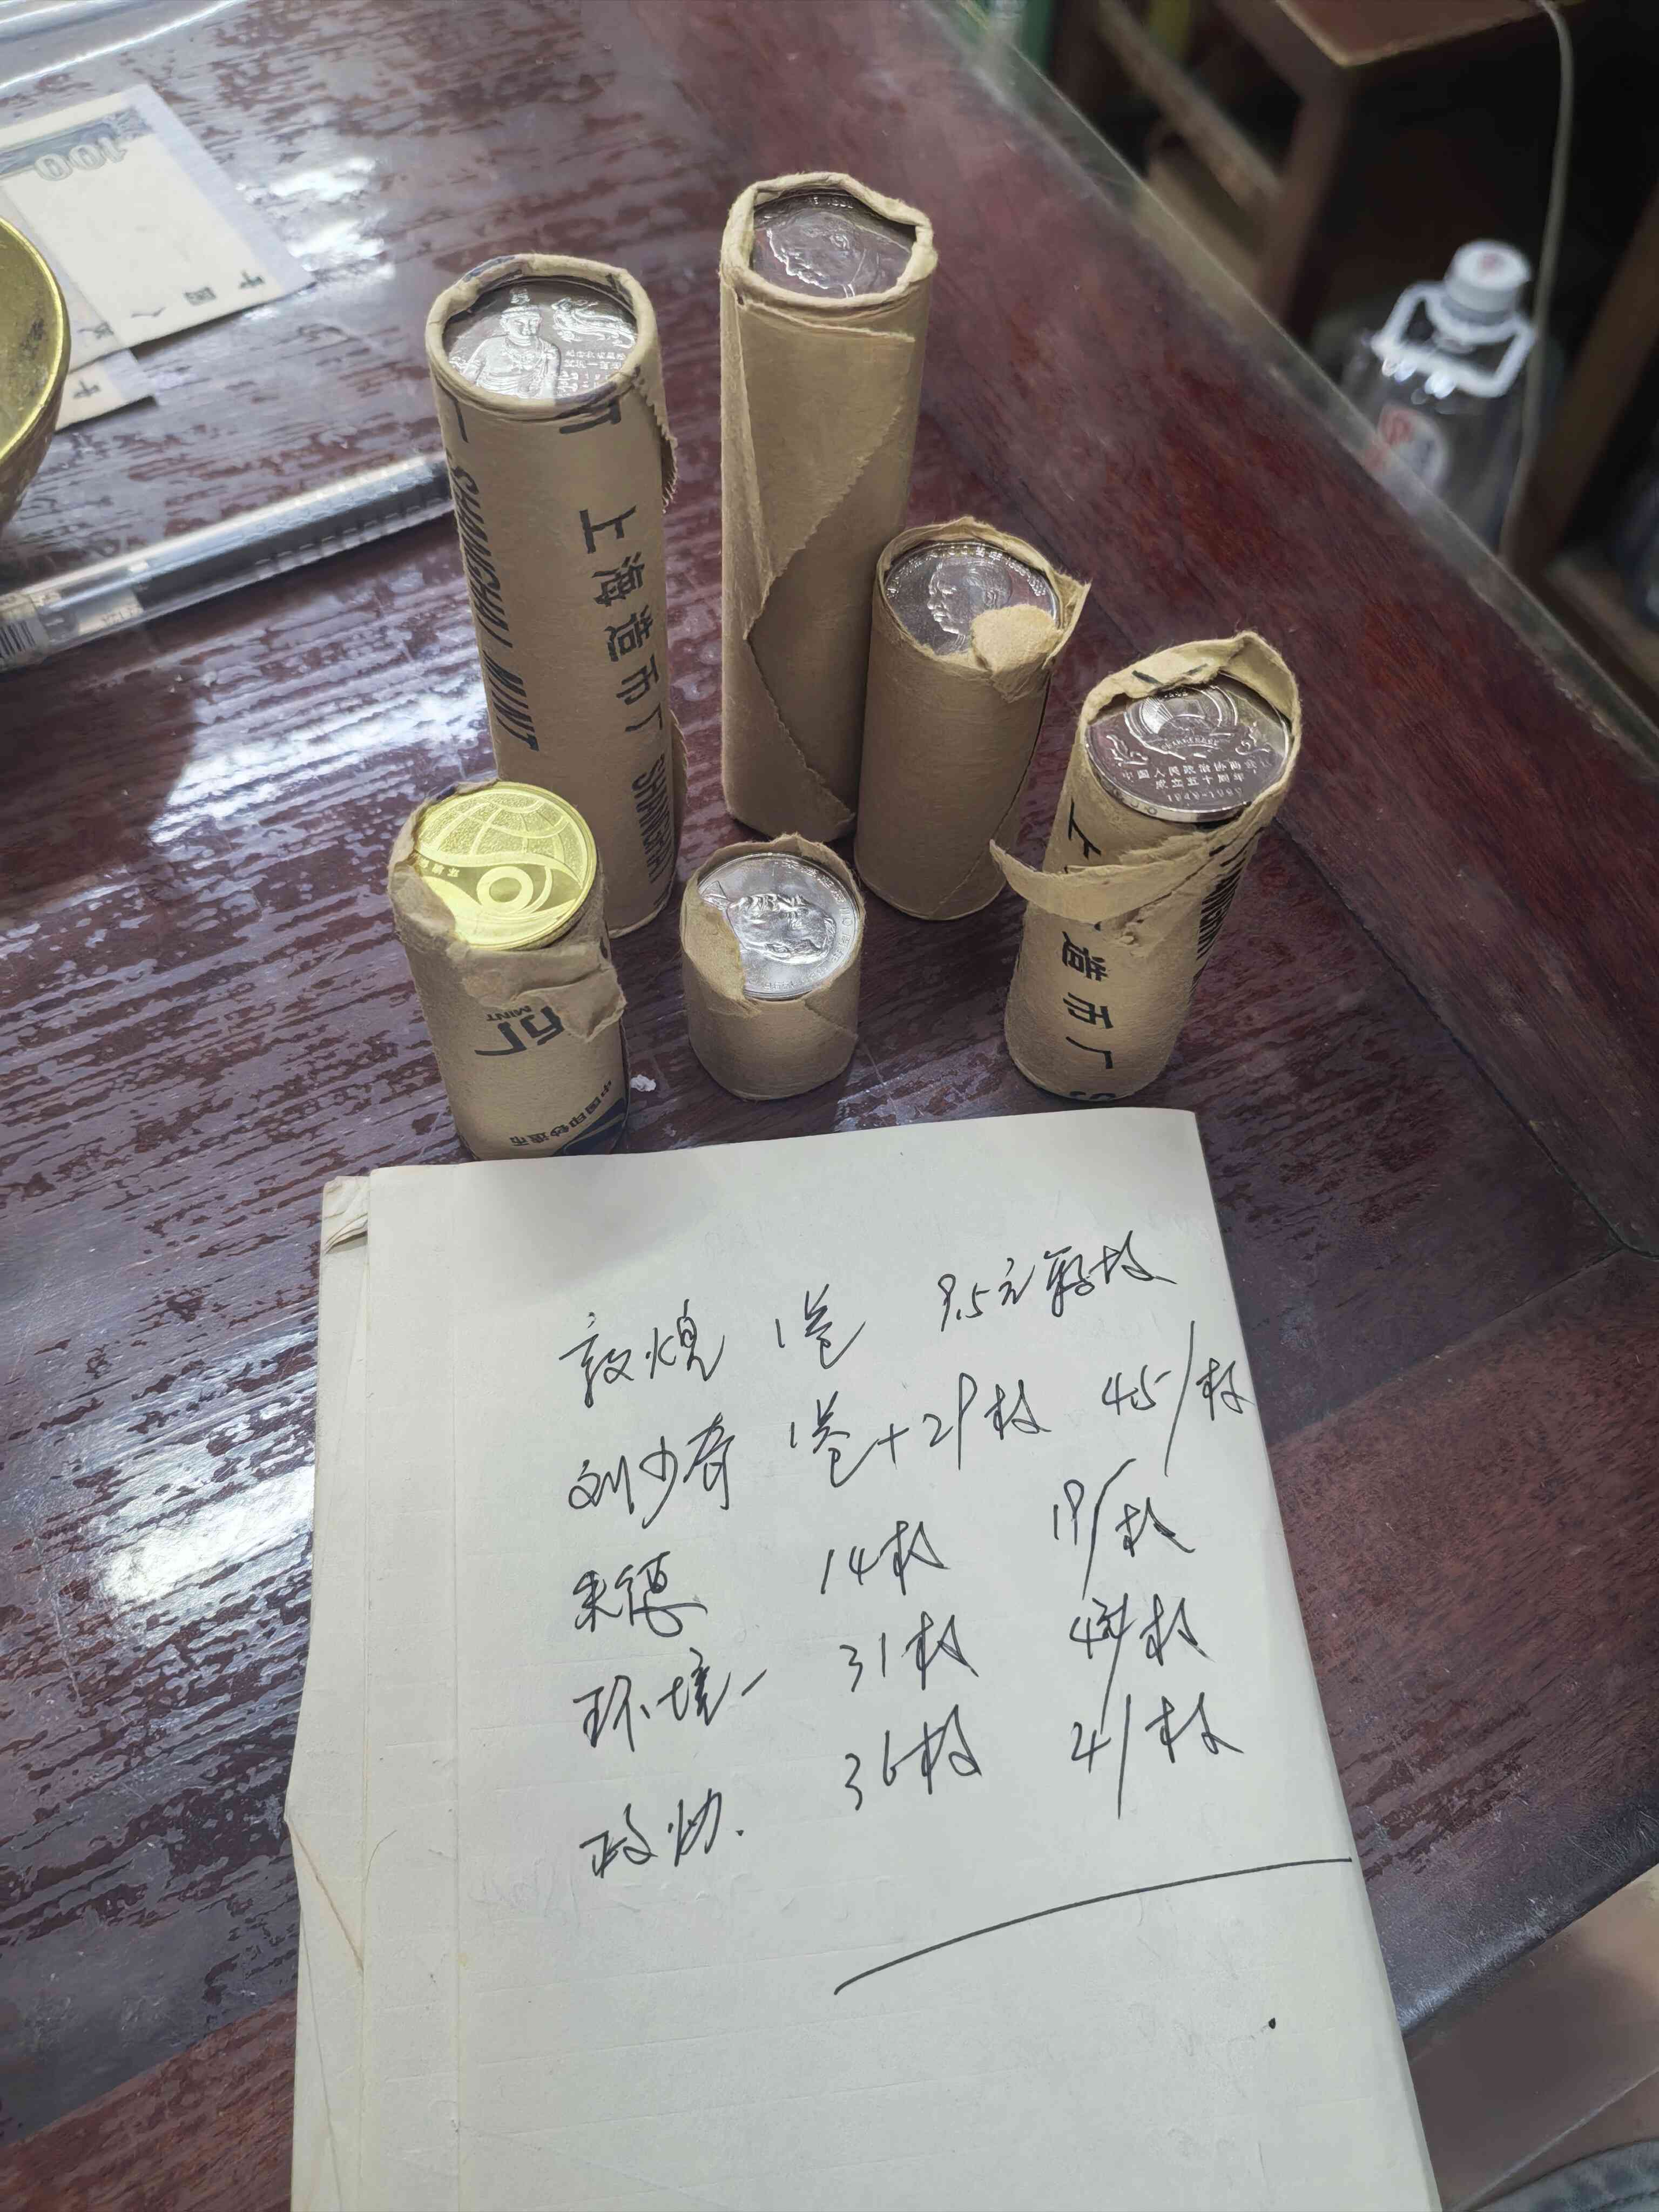 100
上海造币厂 SHANGHAI
SHANGHAI MINT
中国人民政治协商会议
成立五十周年
1949-1999
造币厂 S
币厂
MINT
中国印钞造币
敦煌 1卷 9.5元每枚
刘少奇 1卷+29枚 45/枚
朱德 14枚 19/枚
环境一 31枚 /枚
政协. 36枚 21/枚